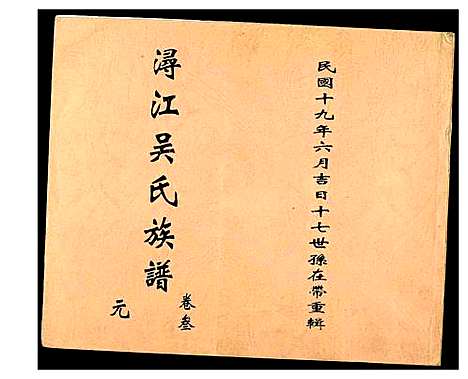 民國十九年六月吉日十七世孫在帶重輯
潯江吳氏族譜
卷叁
元